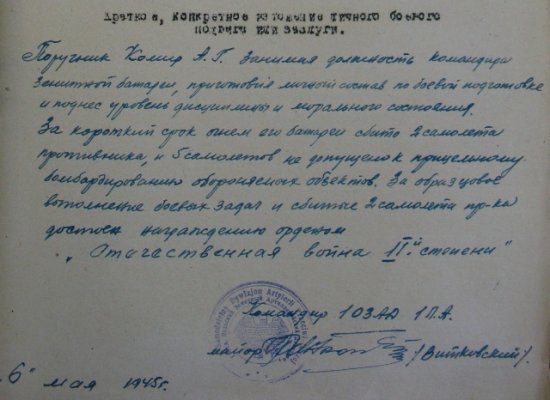 Краткое, конкретное изложение личного боевого
подвига или заслуги.
Поручник Комар А.Г. занимая должность командира
зенитной батареи, приготовил личный состав по боевой подготовке
и поднес уровень дисциплины и морального состояния.
За короткий срок огнем его батареи сбито 2 самолета
противника, и 5 самолетов не допущено к прицельному
бомбардированию обороняемых объектов. За образцовое
выполнение боевых задач и сбитые 2 самолета пр-ка
достоен награждению орденом
„Отачественная война II-й степени"
Командир 1 ОЗАД 1 П.А.
майор /Витковский/
"6" мая 1945г.